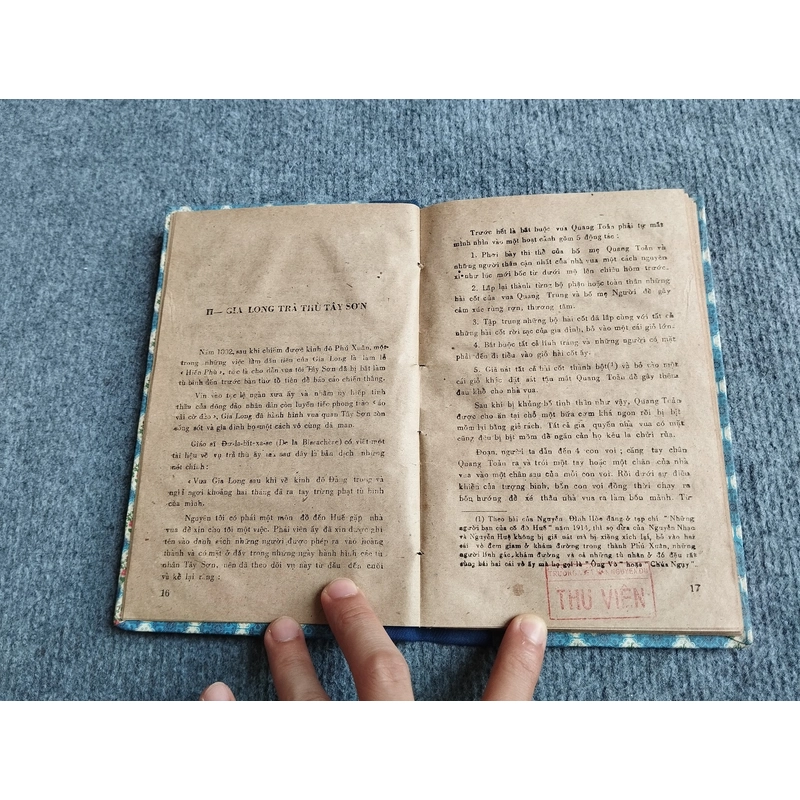 II— GIA LONG TRẢ THÙ TÂY SƠN
Năm 1802, sau khi chiếm được kinh đô Phú Xuân, một
trong những việc làm đầu tiên của Gia Long là làm lễ
« Hiến Phù », tức là cho dẫn vua tôi Tây Sơn đã bị bắt làm
tù binh đến trước bàn thờ tổ tiên để báo cáo chiến thắng.
Vin vào tục lệ ngàn xưa ấy và nhằm uy hiếp tinh
thần của đông đảo nhân dân còn luyến tiếc phong trào « áo
vải cờ đào », Gia Long đã hành hình vua quan Tây Sơn còn
sống sót và gia đình họ một cách vô cùng dã man.
Giáo sĩ Đờ-la-bít-xa-se (De la Bissachère) có viết một
tài liệu về vụ trả thù ấy mà sau đây là bản dịch những
nét chính :
« Vua Gia Long sau khi về kinh đô Đàng trong và
nghỉ ngơi khoảng hai tháng đã ra tay trừng phạt tù binh
của mình.
Nguyên tôi có phái một môn đồ đến Huế gặp nhà
vua để xin cho tôi một việc. Phái viên ấy đã xin được ghi
tên vào danh sách những người được phép ra vào hoàng
thành và có mặt ở đấy trong những ngày hành hình các tù
nhân Tây Sơn, nên đã theo dõi vụ này từ đầu đến cuối
và kể lại rằng :
16
Trước hết là bắt buộc vua Quang Toản phải tự mắt
mình nhìn vào một hoạt cảnh gồm 5 động tác :
1. Phơi bày thi thể của bố mẹ Quang Toản và
những người thân cận nhất của nhà vua một cách nguyên
xi như lúc mới bốc từ dưới mộ lên chiều hôm trước.
2. Lắp lại thành từng bộ phận hoặc toàn thân những
hài cốt của vua Quang Trung và bố mẹ Người để gây
cảm xúc rùng rợn, thương tâm.
3. Tập trung những bộ hài cốt đã lắp cùng với tất cả
những hài cốt rời rạc của gia đình, bỏ vào một cái giỏ lớn.
4. Bắt buộc tất cả lính tráng và những người có mặt
phải đến đi tiểu vào giỏ hài cốt ấy.
5. Giã nát tất cả hài cốt thành bột(¹) và bỏ vào một
cái giỏ khác đặt sát tận mắt Quang Toản để gây thêm
đau khổ cho nhà vua.
Sau khi bị khủng bố tinh thần như vậy, Quang Toản
được cho ăn tại chỗ một bữa cơm khá ngon rồi bị bịt
mồm lại bằng giẻ rách. Tất cả gia quyến nhà vua có mặt
cũng đều bị bịt mồm để ngăn cản họ kêu la chửi rủa.
Đoạn, người ta dẫn đến 4 con voi ; căng tay chân
Quang Toản ra và trói một tay hoặc một chân của nhà
vua vào một chân sau của mỗi con voi. Rồi dưới sự điều
khiển của tượng binh, bốn con voi đồng thời chạy ra
bốn hướng để xé thân nhà vua ra làm bốn mảnh. Từ
(1) Theo bài của Nguyễn Đình Hòe đăng ở tạp chí " Những
người bạn của cố đô Huế " năm 1914, thì sọ dừa của Nguyễn Nhạc
và Nguyễn Huệ không bị giã nát mà bị xiềng xích lại, bỏ vào hai
cái vò đem giam ở khám đường trong thành Phú Xuân, những
người lính gác, khám đường và cả những tù nhân ở đó đều rất
sùng bái hai cái vò ấy mà họ gọi là "Ông Vò" hoặc "Chúa Ngụy".
17
THƯ VIỆN